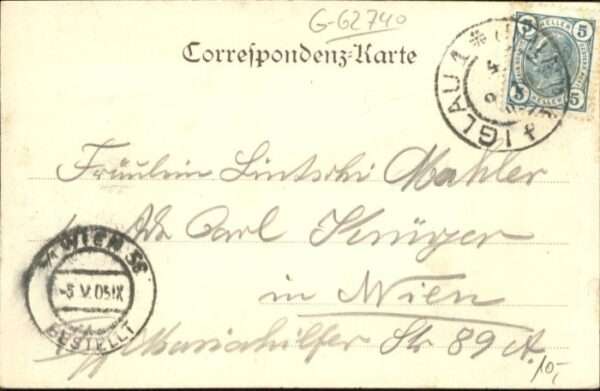 G-62740
Correspondenz-Karte
5 HELLER 5
IGLAU 1
Fräulein Lintschi Mahler
Adr. Carl Krüger
in Wien
Mariahilfer Str. 89 A.
WIEN 56
-5 V 05 IX
BESTELLT
10,-